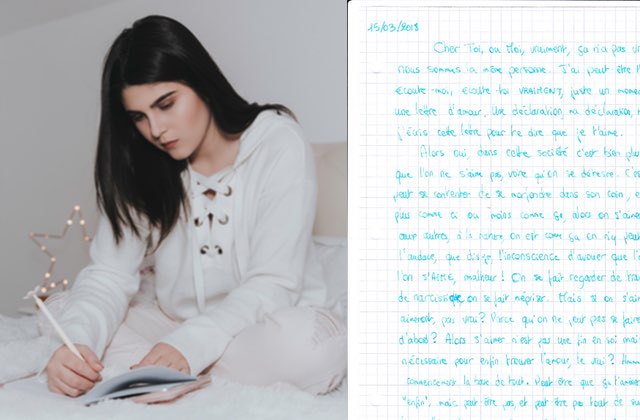 15/03/2018
Cher Toi, ou Moi, vraiment, ça n'a pas
nous sommes la même personne. J'ai peut être
Ecoute-moi, écoute-toi VRAIMENT, juste un
une lettre d'amour. Une déclaration, ma déclaration,
j'écris cette lettre pour te dire que je t'aime.
Alors oui, dans cette société c'est bien
que l'on ne s'aime pas, voire qu'on se déteste.
peut se contenter de se morfondre dans son coin,
pas comme ci ou moins comme ça, alors on
aux autres, à la on est comme ça on n'y peut
l'audace, que dis-je, l'inconscience d'avouer que
l'on s'AIME, malheur! On se fait regarder de
de narcissique on se fait mépriser. Mais si on
aimeront, pas vrai? Parce qu'on ne peut pas se faire
d'abord? Alors s'aimer n'est pas une fin en soi mais
nécessaire pour enfin trouver l'amour, le vrai?
commencement, la base de tout. Peut être que
"enfin", mais peut être pas, et peut être pas tout de